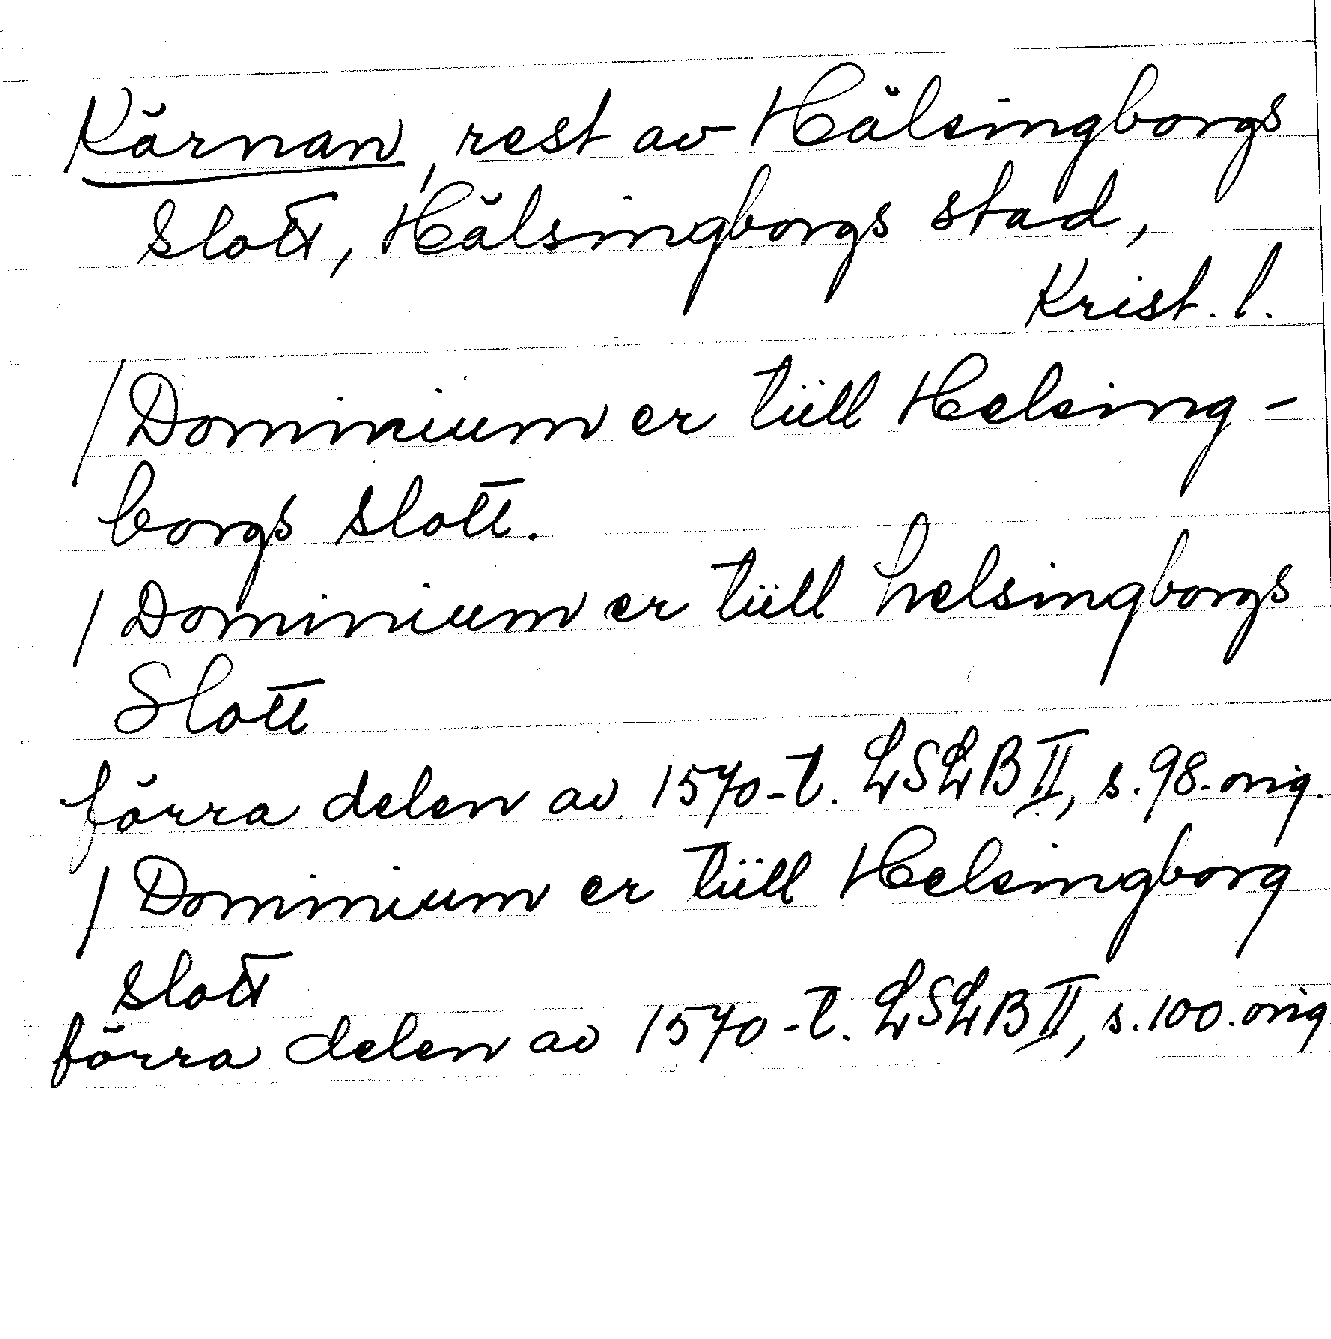 Kärnan, rest av Hälsingborgs
slott, Hälsingborgs stad,
Krist. l.
/ Dominium er tüll Helsing-
borgs slott.
/ Dominium er tüll helsingborgs
Slott
förra delen av 1570-t. LSLB II, s. 98. orig.
/ Dominium er tüll Helsingborg
slott
förra delen av 1570-t. LSLB II, s. 100. orig